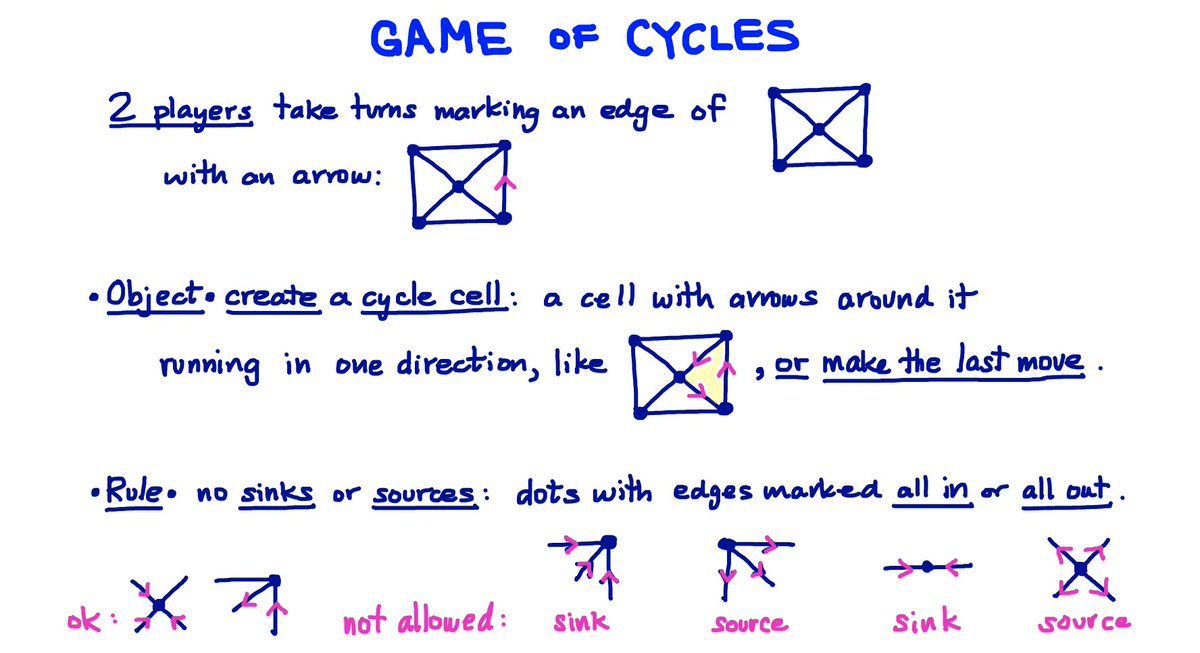 GAME OF CYCLES
2 players take turns marking an edge of
with an arrow:
• Object • create a cycle cell: a cell with arrows around it
running in one direction, like , or make the last move.
• Rule • no sinks or sources: dots with edges marked all in or all out.
ok: not allowed: sink source sink source